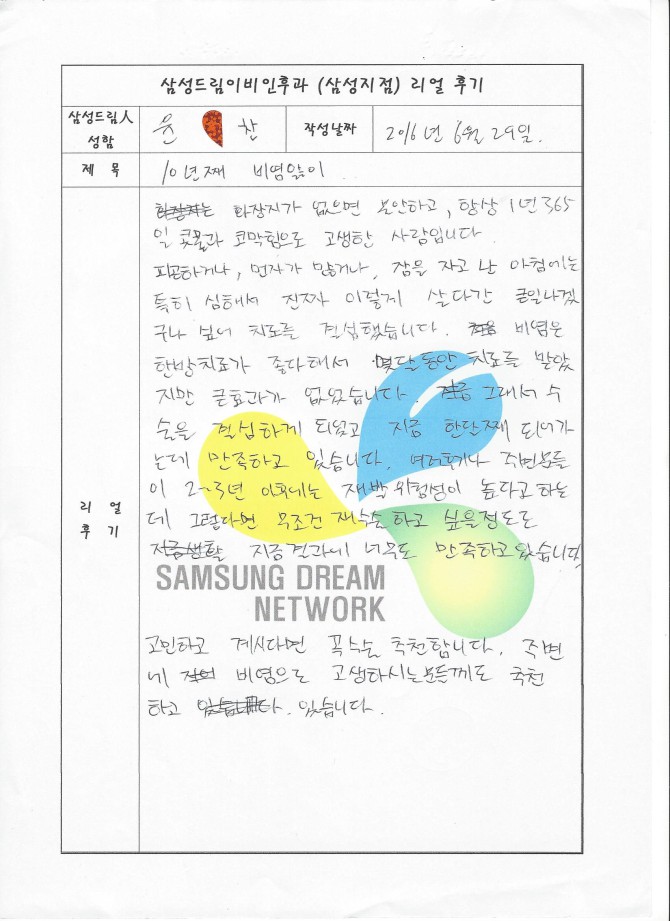 삼성드림이비인후과 (삼성지점) 리얼 후기
삼성드림人 성함 윤 찬 작성날짜 2016년 6월 29일.
제 목 10년째 비염앓이
화장지가 없으면 불안하고, 항상 1년 365
일 콧물과 코막힘으로 고생한 사람입니다.
피곤하거나, 먼지가 많거나, 잠을 자고 난 아침에는
특히 심해서 진짜 이렇게 살다간 큰일나겠
구나 싶어 치료를 결심했습니다. 비염은
한방치료가 좋다해서 몇달동안 치료를 받았
지만 큰효과가 없었습니다. 그래서 수
술을 결심하게 되었고 지금 한달째 되어가
는데 만족하고 있습니다. 주변분들
이 2~3년 이후에는 재발위험성이 높다고 하는
데 그렇다면 무조건 재수술하고 싶을정도로
지금결과에 너무도 만족하고있습니다
리 얼
후 기
SAMSUNG DREAM
NETWORK
고민하고 계시다면 꼭수술 추천합니다. 주변
에 비염으로 고생하시는분들께도 추천
하고 있습니다.